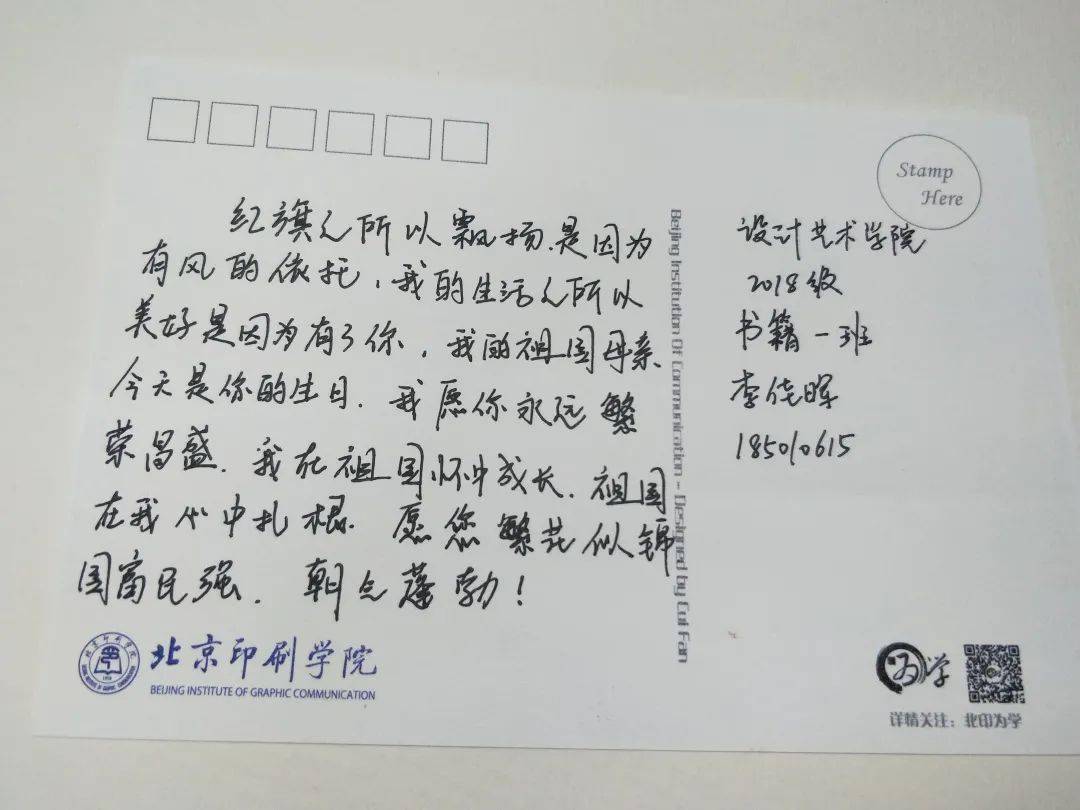 红旗之所以飘扬.是因为
有风的依托，我的生活之所以
美好是因为有了你，我的祖国母亲
今天是你的生日.我愿你永远繁
荣昌盛.我在祖国怀中成长.祖国
在我心中扎根.愿您繁花似锦
国富民强.朝气蓬勃！
北京印刷学院
BEIJING INSTITUTE OF GRAPHIC COMMUNICATION
Beijing Institution Of Communication - Designed by Cui Fan
Stamp
Here
设计艺术学院
2018级
书籍一班
李佬晖
185010615
为学
详情关注：北印为学